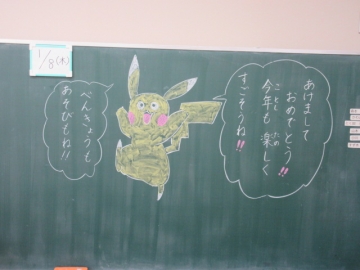 1/8(木)
あけまして
おめでとう!!
今年も楽しく
ことし
たの
すごそうね!!
べんきょうも
あそびもね!!